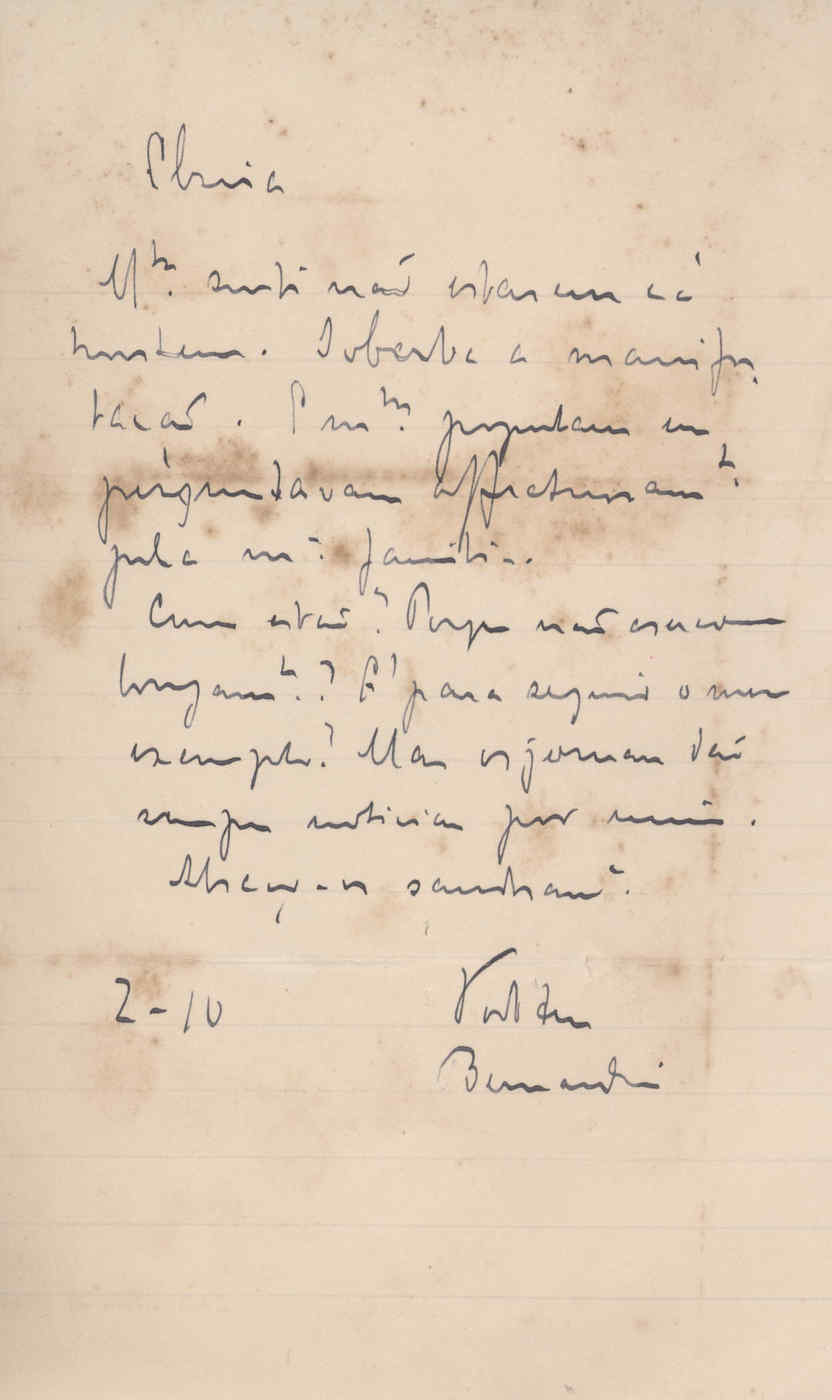 Elzira
M.to senti não estarem cá
hontem. Soberba a manifes
tação. E m.tos perguntam e
perguntavam affectuosam.te
pela m.a familia.
Como estão? Porque não escrevem
longam.te? E' para seguir o meu
exemplo? Mas os jornaes dão
sempre noticias por mim.
Abraço-os saudosam.e
2-10
Bernardino